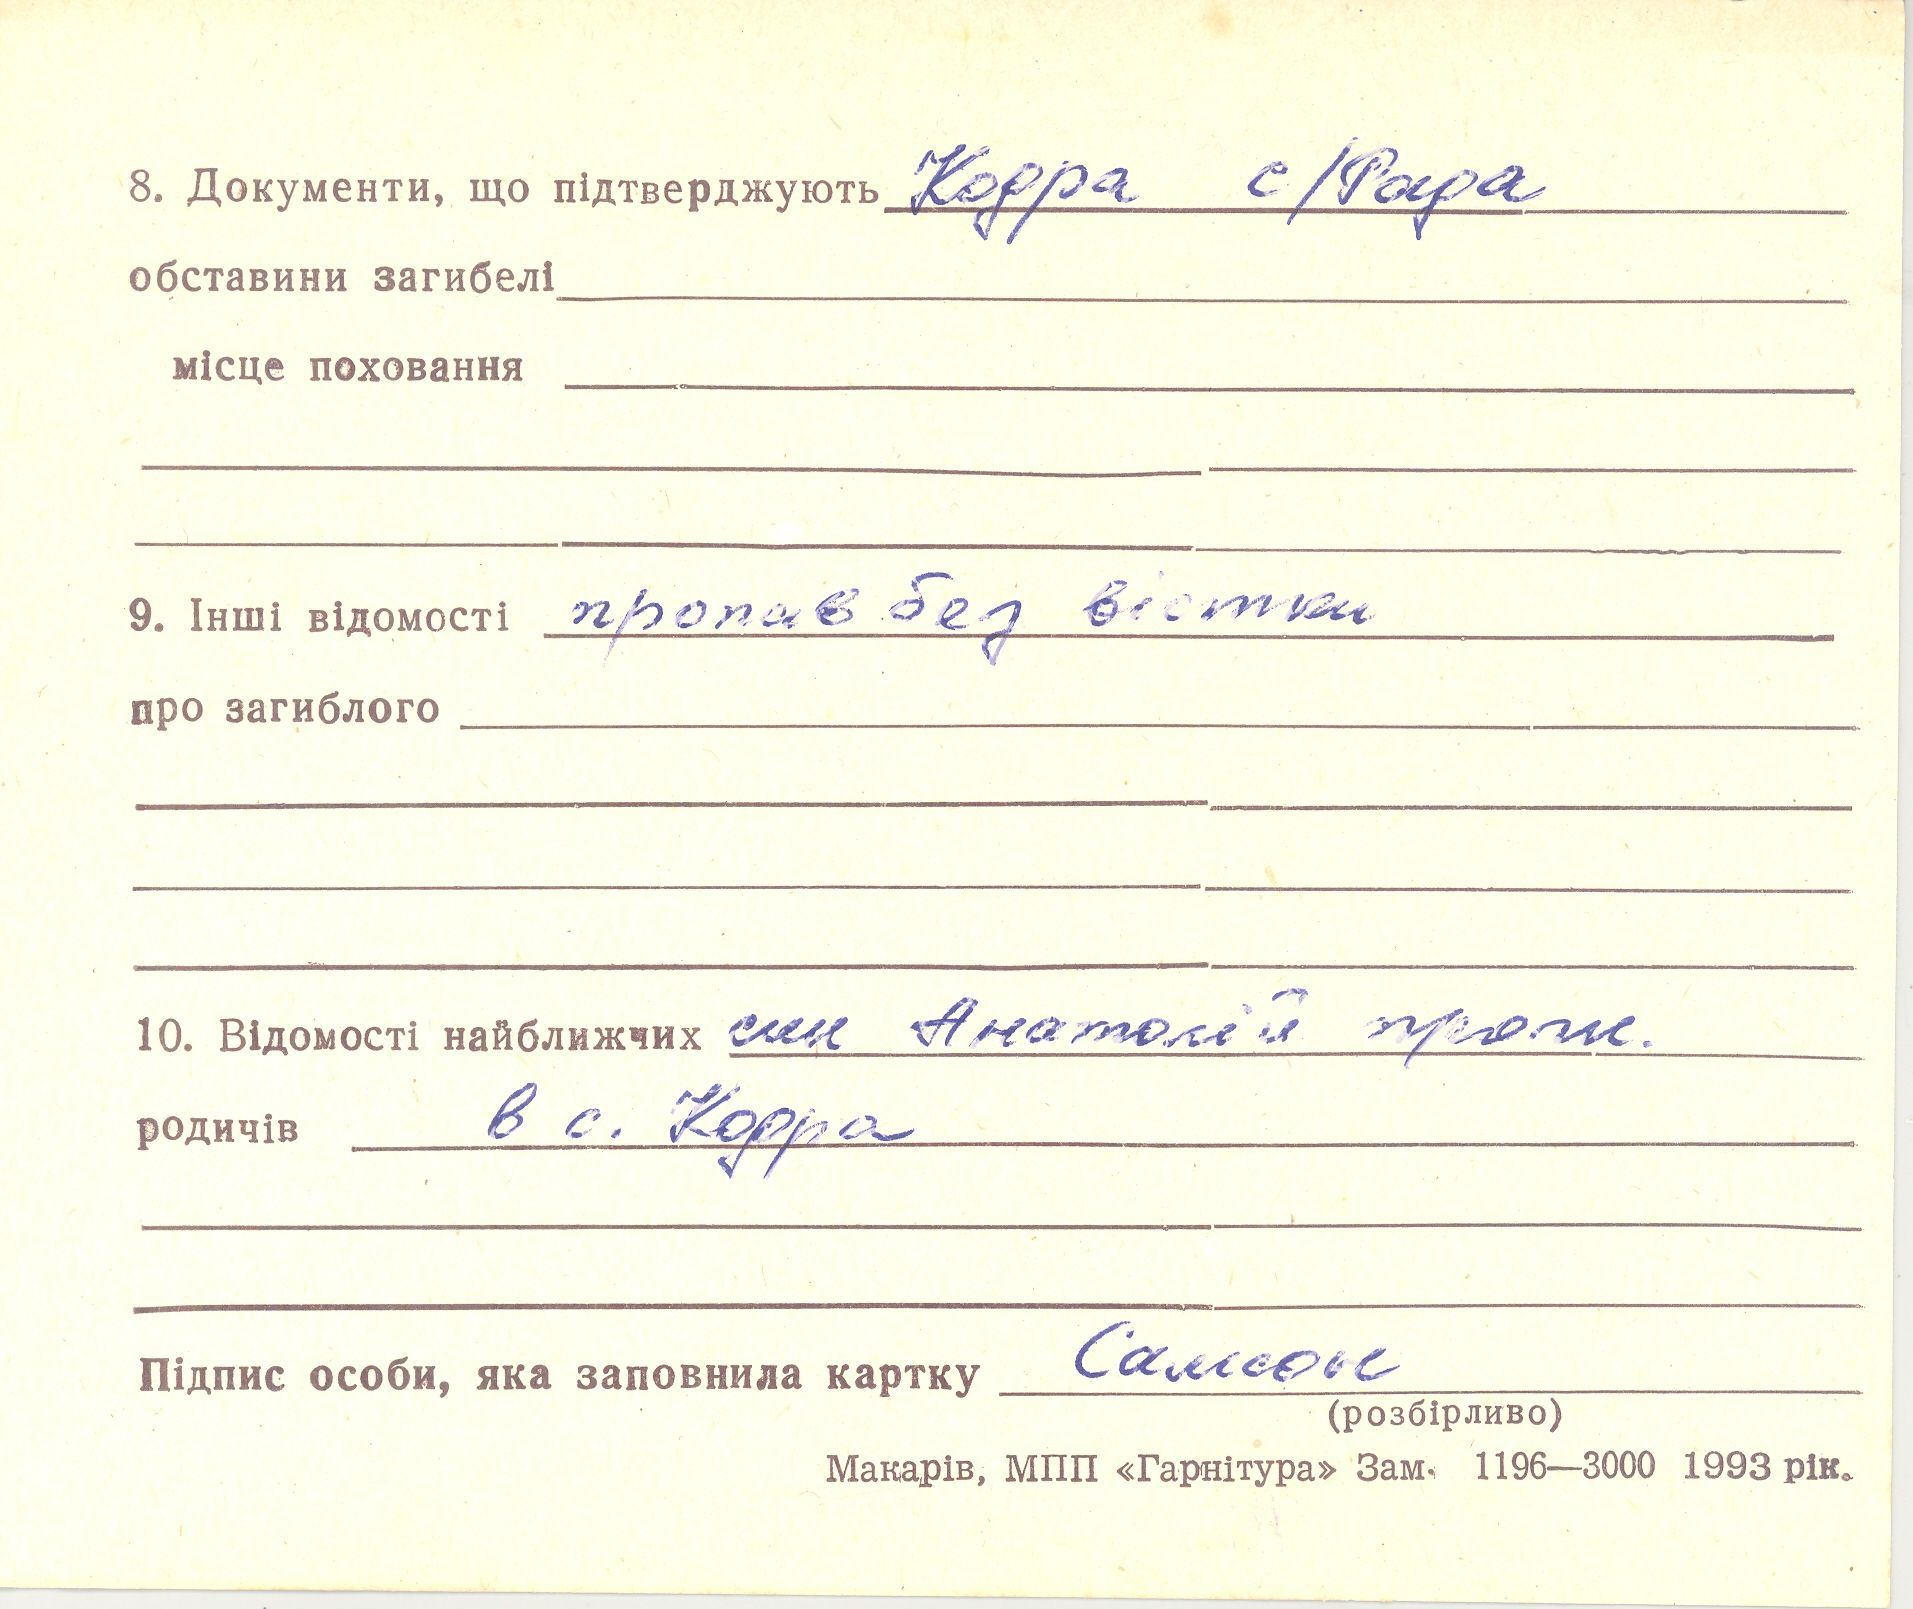 8. Документи, що підтверджують Кодра с/Рада
обставини загибелі
місце поховання
9. Інші відомості пропав без вістки
про загиблого
10. Відомості найближчих син Анатолій прож.
родичів в с. Кодра
Підпис особи, яка заповнила картку Самсон
(розбірливо)
Макарів, МПП «Гарнітура» Зам. 1196—3000 1993 рік.